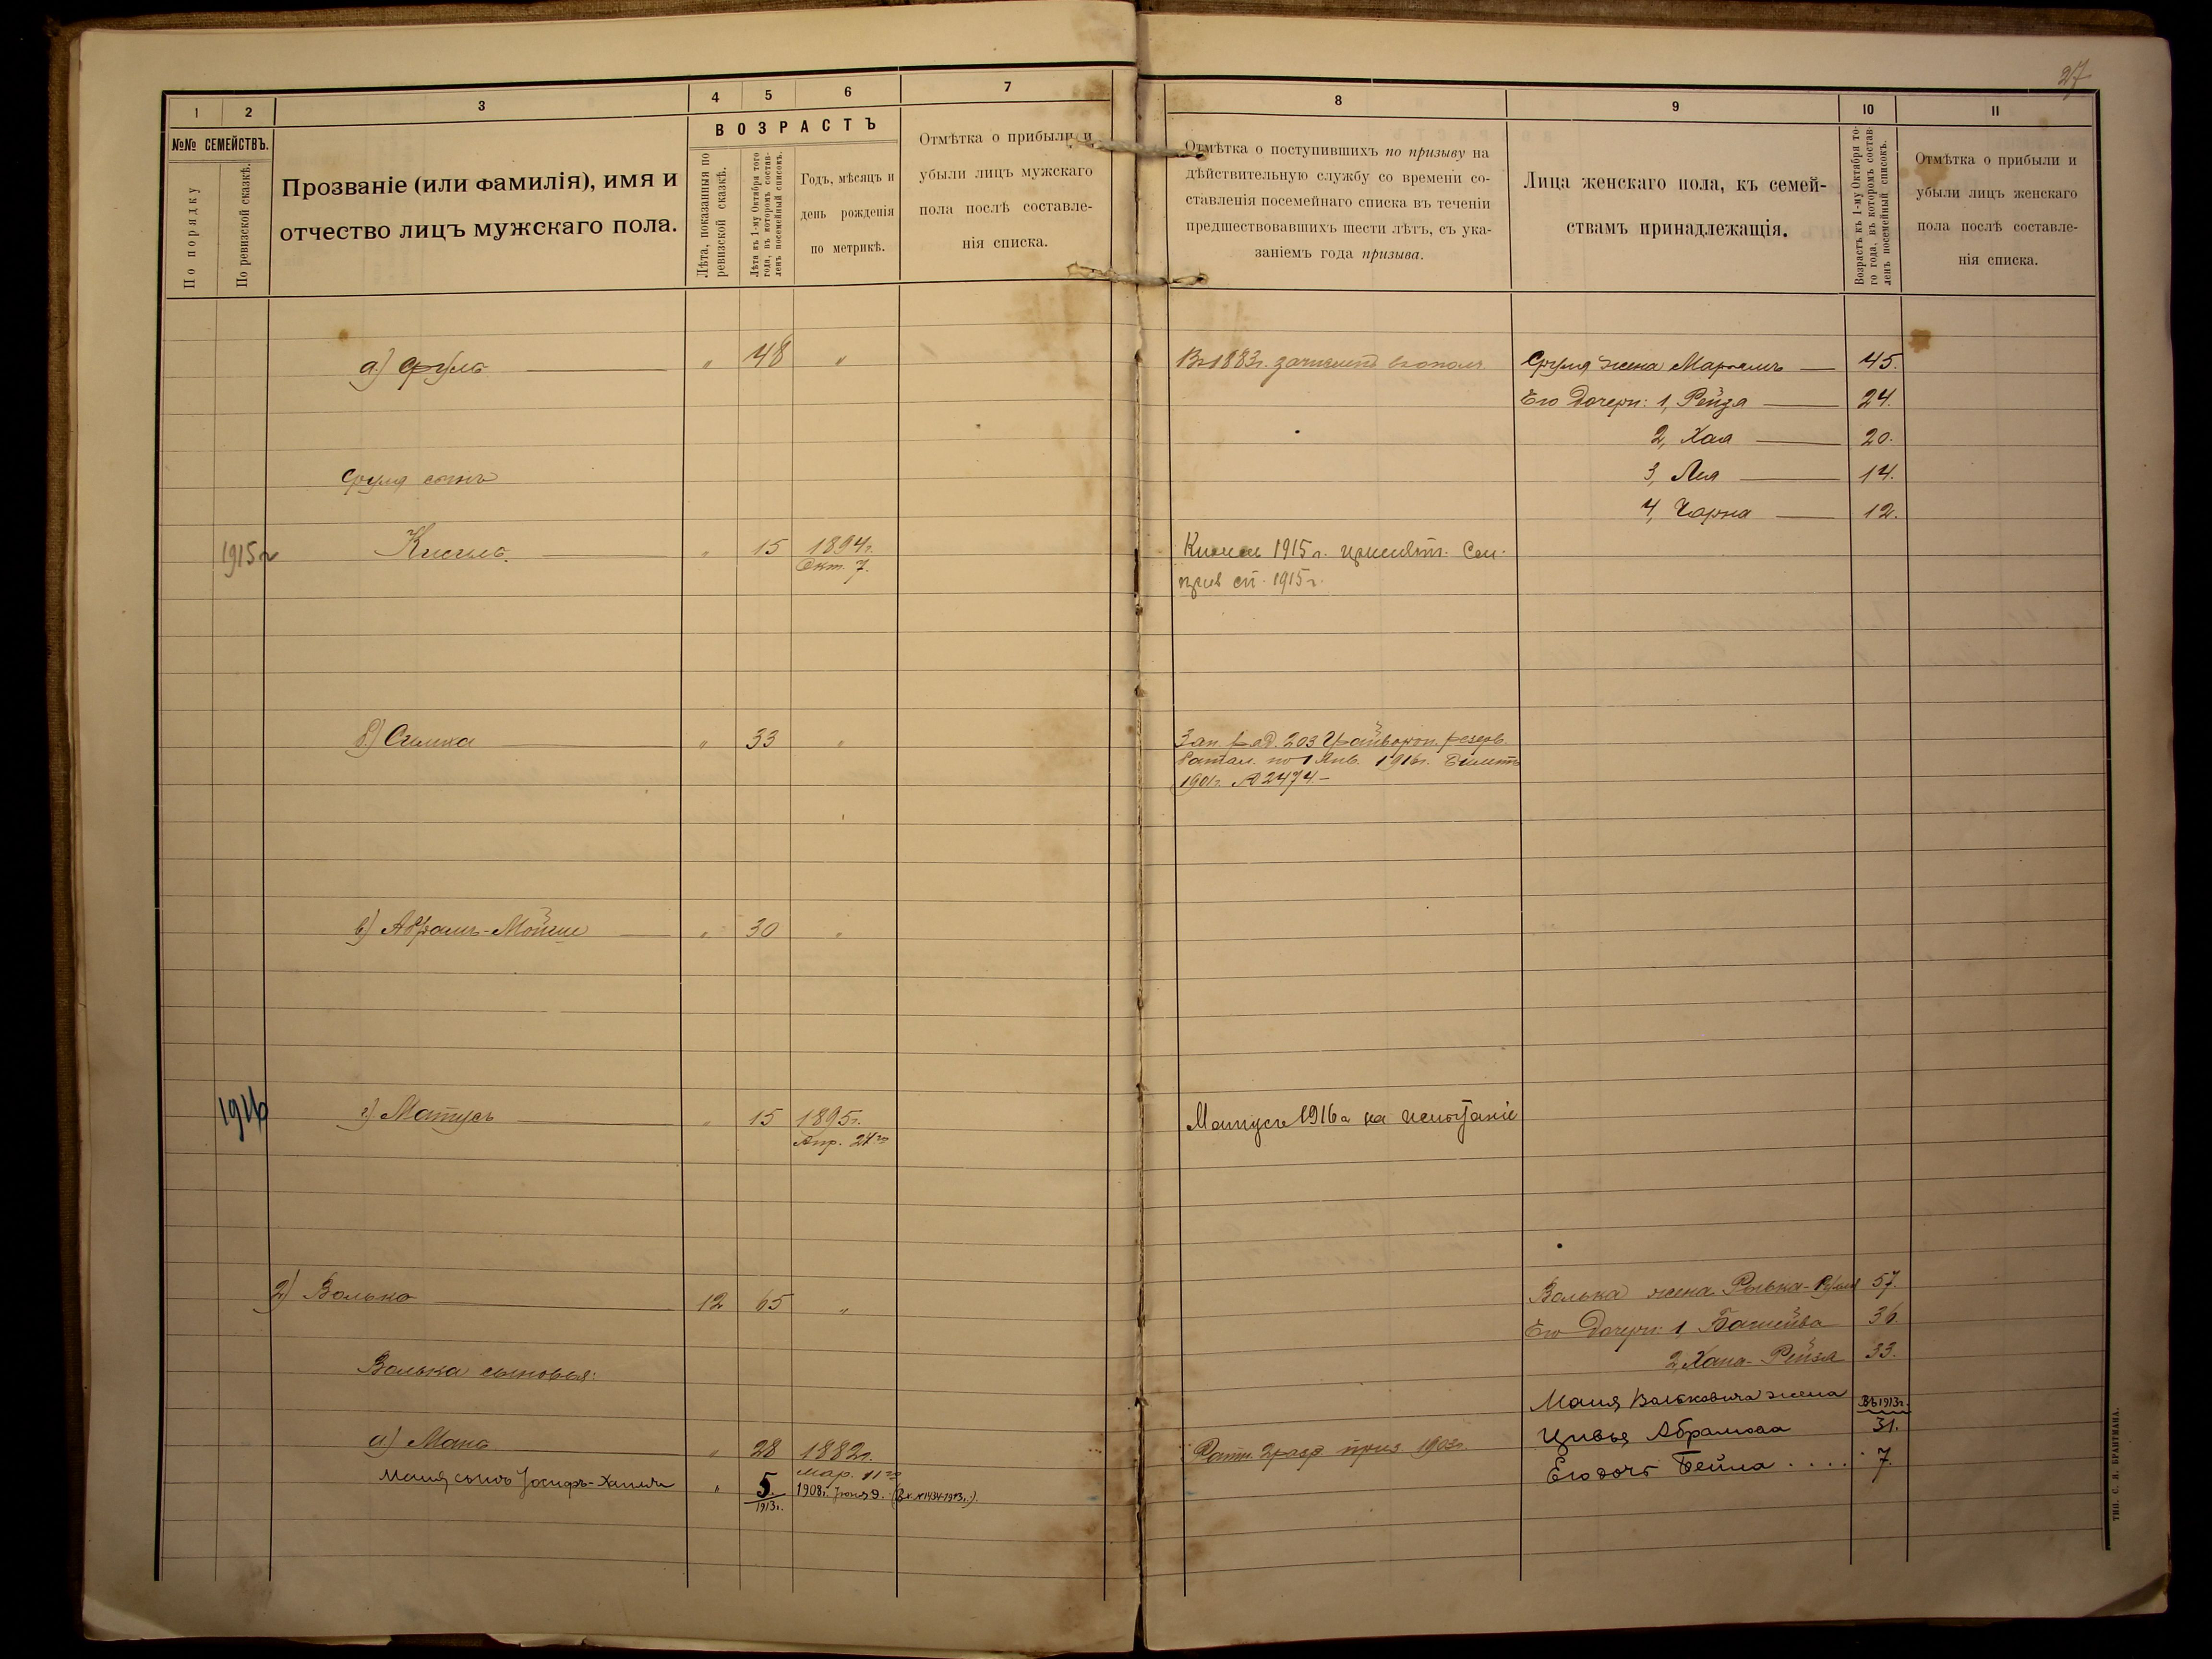 27
1 2 3 4 5 6 7
№№ СЕМЕЙСТВЪ.
По порядку
По ревизской сказкѣ.
Прозваніе (или фамилія), имя и
отчество лицъ мужскаго пола.
ВОЗРАСТЪ
Лѣта, показанныя по
ревизской сказкѣ.
Лѣта къ 1-му Октября того
года, въ которомъ состав-
ленъ посемейный списокъ.
Годъ, мѣсяцъ и
день рожденія
по метрикѣ.
Отмѣтка о прибыли и
убыли лицъ мужскаго
пола послѣ составле-
нія списка.
а) Сруль " 48 "
Сруля сынъ
1915г Кисиль " 15 1894г.
Окт. 7.
б) Симха " 33 "
в) Абрамъ-Мойше " 30 "
1916 г) Матусъ " 15 1895г.
Апр. 24го
2) Волько 12 65 "
Волька сыновья:
а) Маня " 28 1882г.
мар. 11го
Маня сынъ Іосифъ- " 5. 1908г. Іюня 9. (Вх. №1434-1913г.).
1913г.
8 9 10 11
Отмѣтка о поступившихъ по призыву на
дѣйствительную службу со времени со-
ставленія посемейнаго списка въ теченіи
предшествовавшихъ шести лѣтъ, съ ука-
заніемъ года призыва.
Лица женскаго пола, къ семей-
ствамъ принадлежащія.
Возрастъ къ 1-му Октября то-
го года, въ которомъ состав-
ленъ посемейный списокъ.
Отмѣтка о прибыли и
убыли лицъ женскаго
пола послѣ составле-
нія списка.
Въ 1883г. зачисленъ въ ополч. Сруля жена Маріамъ 45.
Его дочери: 1, Рейза 24.
2, Хая 20.
3, Лея 14.
4, Чарна 12.
1915г.
1915г.
Зап. ряд. 203 Грайворон. резерв.
батал. по 1 Янв. 1916г. билетъ
1901г. № 2474.—
Матусъ 1916г на испытаніе
Волька жена Рывка- 57.
Его дочери: 1, Башейва 36
2, Хана-Рейза 33.
Маня Вольковича жена Въ 1913г.
Цивья Абрамова 31.
Ратн. 2 разр. приз. 1903г.
Его дочь Бейла .... 7.
ТИП. С. Н. БРАНТМАНА.